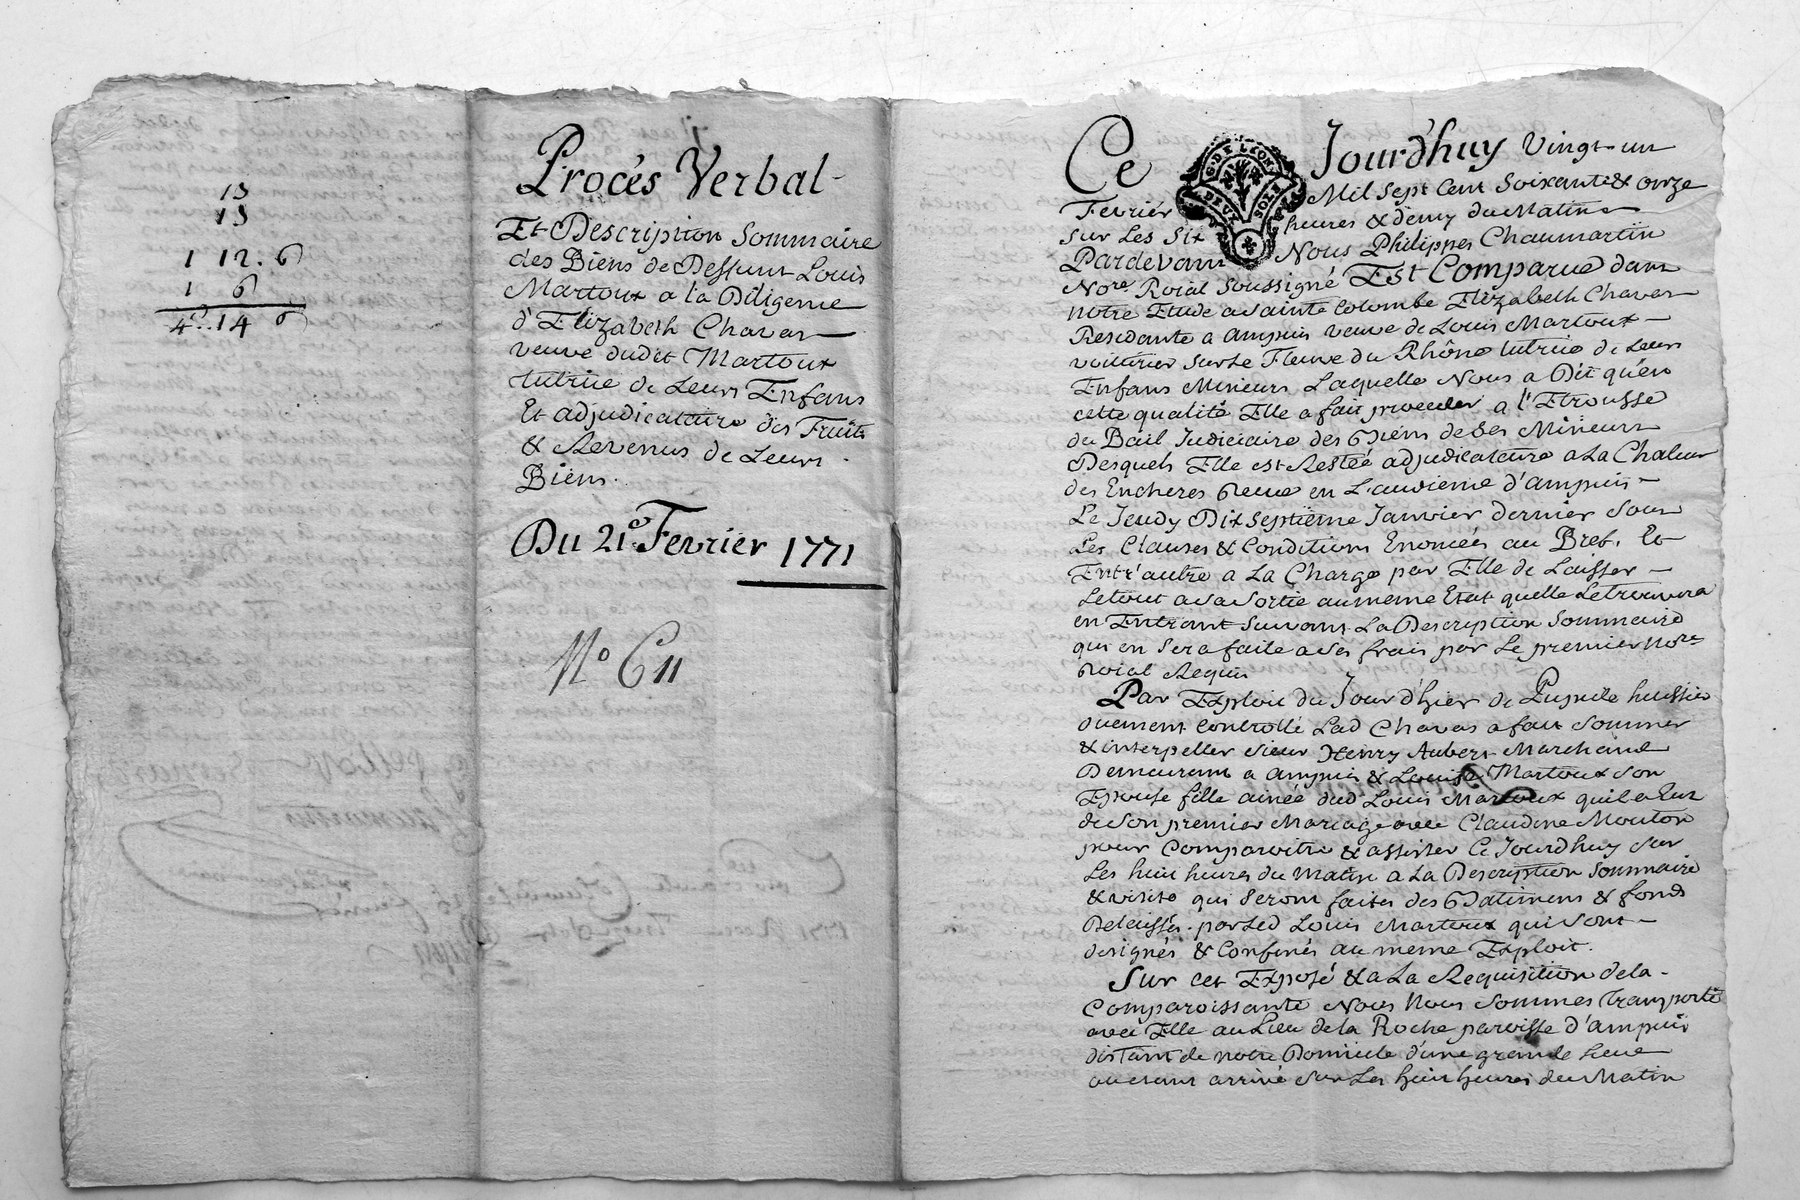 13
15
1 12. 6
1 6
4 14 6
Procés Verbal
Et Description Sommaire
des Biens de Deffunt Louis
Martoux a la Diligence
d'Elizabeth Chavas
veuve dudit Martoux
tutrice de Leurs Enfans
Et adjudicataire des Fruits
& Revenus de Leurs
Biens.
Du 21e Fevrier 1771
No C 11
Ce Jourd'huy Vingt-un
Fevrier Mil Sept Cent Soixante & onze
G. DE LYON
DEUX SOLS
Sur Les Six heures & demy du Matin
Pardevant Nous Philippes Chaumartin
Nore. Roial Soussigné Est Comparue dans
notre Etude a Sainte Colombe Elizabeth Chavas
Residante a ampuis veuve de Louis Martoux
voiturier sur Le Fleuve du Rhône tutrice de Leurs
Enfans Mineurs Laquelle Nous a Dit qu'en
cette qualité Elle a fait proceder a l'Etrousse
du Bail Judiciaire des Biens de Ses Mineurs
Desquels Elle est Restée adjudicataire a La Chaleur
des Encheres Reçue en L'audience d'ampuis
Le Jeudy Dix Septième Janvier dernier Sous
Les Clauses & Conditions Enoncées au Bref. Et
Entr'autre a La Charge par Elle de Laisser
Le tout a sa Sortie au meme Etat quelle Le trouvera
en Entrant Suivant La Description Sommaire
qui en Sera faite a Ses frais par Le premier Nore
Roial Requis
Par Exploit du Jour d'hier de Pupule huissier
duement Controllé Lad Chavas a fait Sommer
& interpeller Sieur Henry Aubert Marchand
Demeurant a ampuis & Louise Martoux Son
Epouse fille ainée dud Louis Martoux quil a Eut
de Son premier Mariage avec Claudine Mouton
pour Comparoitre & assister Ce Jourdhuy Sur
Les huit heures du Matin a La Description Sommaire
& visite qui Seront faites des Batimens & fonds
Delaissés par Led Louis Martoux qui Sont
designés & Confinés au meme Exploit.
Sur cet Exposé & a La Requisition de la
Comparoissante Nous Nous Sommes Transporté
avec Elle au Lieu de la Roche paroisse d'ampuis
distant de notre Domicile d'une grande Lieue
ou etant arrivé Sur Les huit heures du Matin